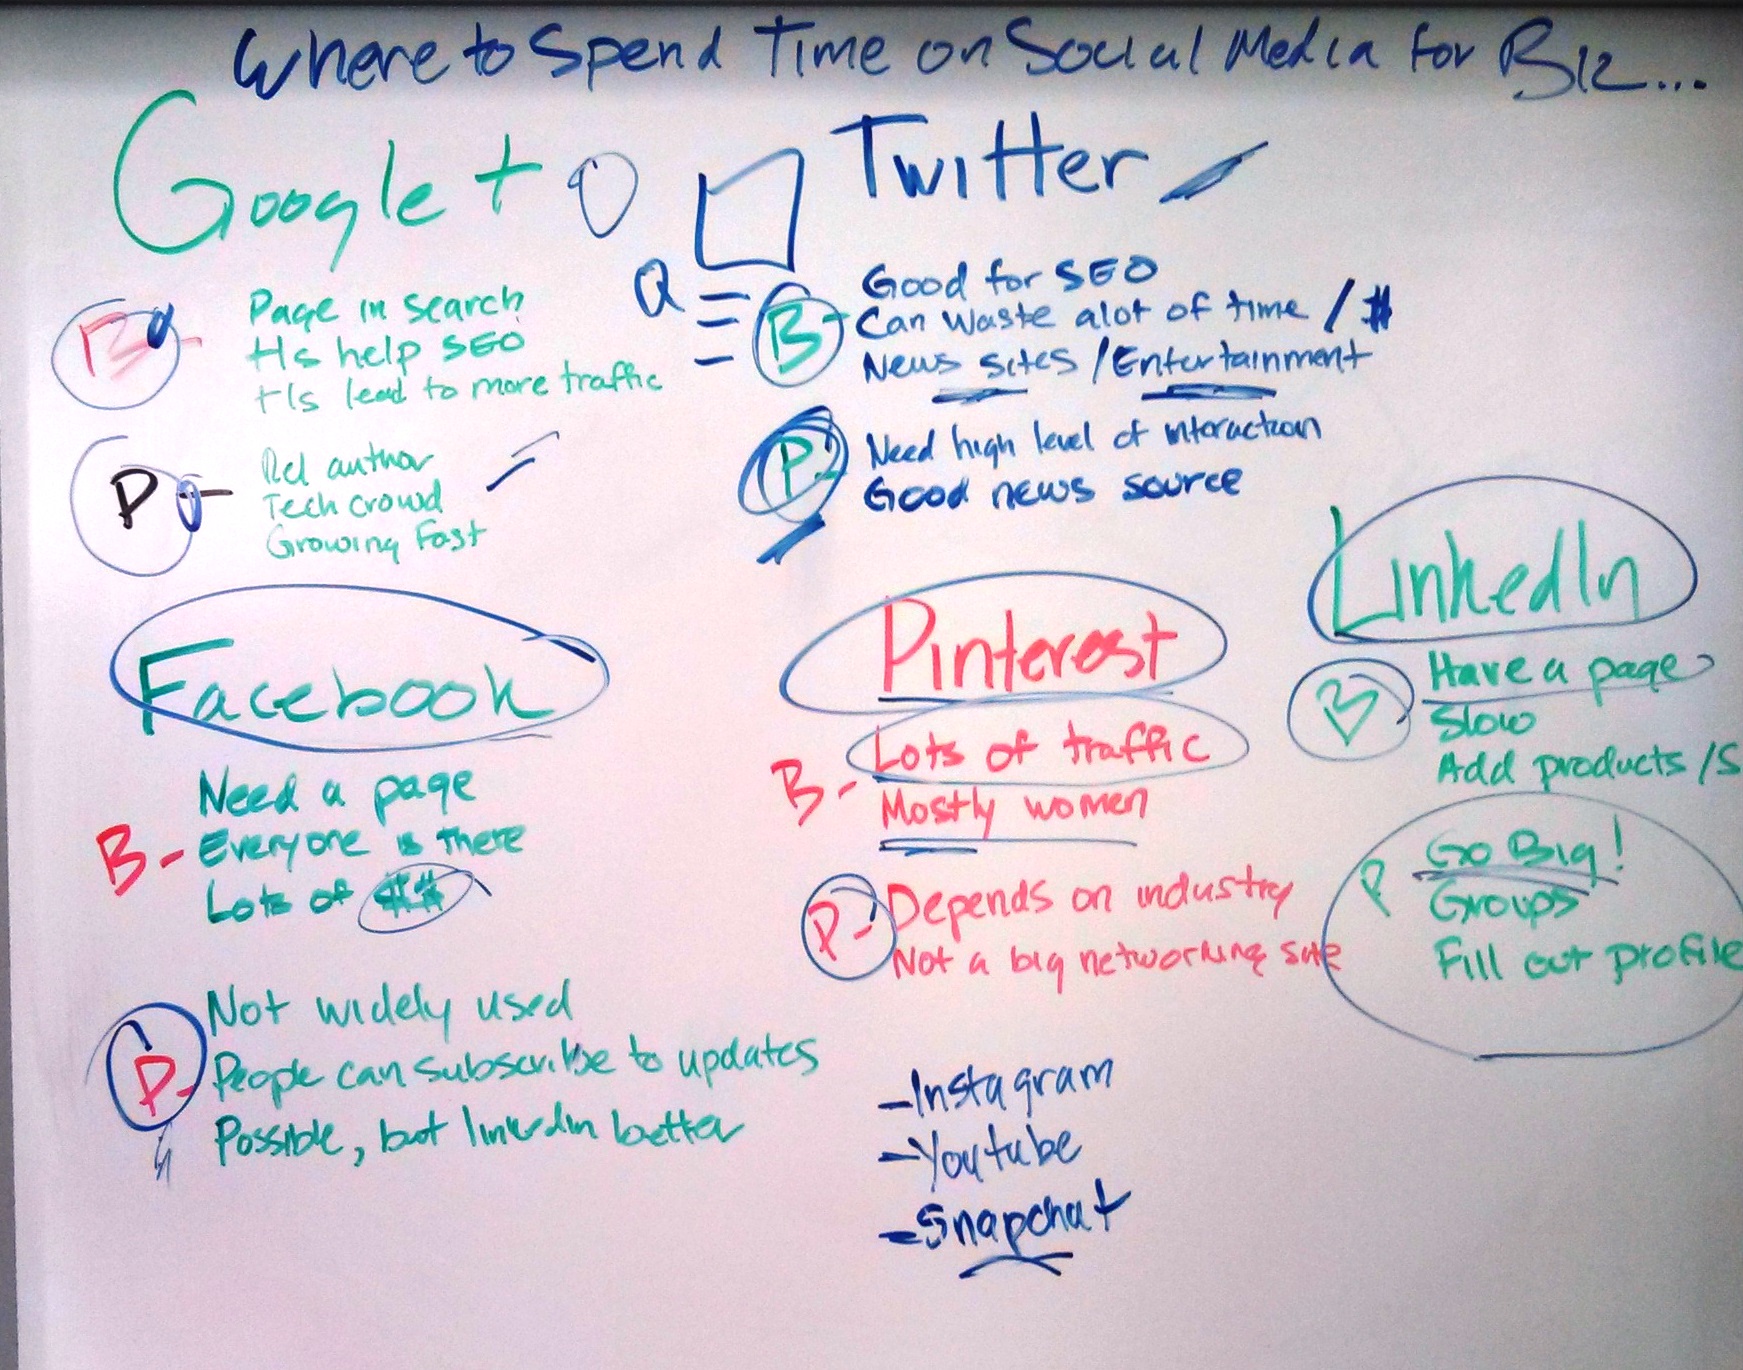 Where to Spend Time on Social Media for Biz...
Google +
B -
Page in search
+1s help SEO
+1s lead to more traffic
P -
Rel author
Tech crowd
Growing Fast
Twitter
Q
B -
Good for SEO
Can waste alot of time / $
News sites / Entertainment
P -
Need high level of interaction
Good news source
Facebook
B -
Need a page
Everyone is there
Lots of $$
P -
Not widely used
People can subscribe to updates
Possible, but linkedin better
Pinterest
B -
Lots of traffic
Mostly women
P -
Depends on industry
Not a big networking site
LinkedIn
B
Have a page
Slow
Add products / S
P
Go Big!
Groups
Fill out profile
- Instagram
- Youtube
- Snapchat